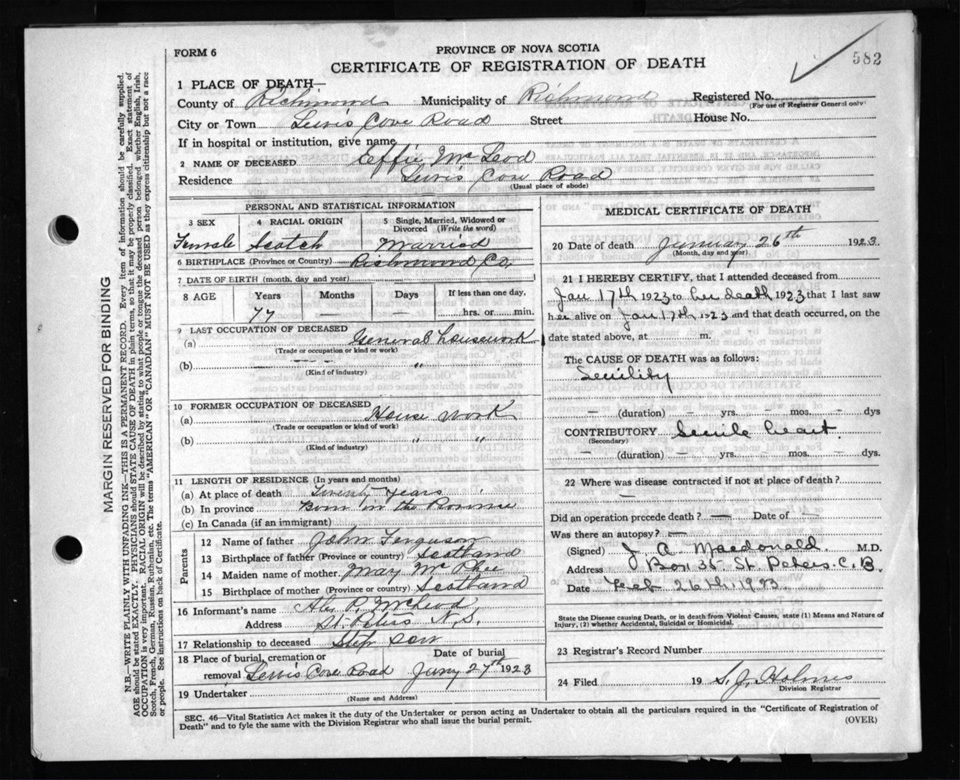 FORM 6
PROVINCE OF NOVA SCOTIA
582
CERTIFICATE OF REGISTRATION OF DEATH
1 PLACE OF DEATH—
County of Richmond Municipality of Richmond Registered No.
(For use of Registrar General only)
City or Town Lewis Cove Road Street House No.
If in hospital or institution, give name
2 NAME OF DECEASED Effie Mc Leod
Residence Lewis Cove Road
(Usual place of abode)
PERSONAL AND STATISTICAL INFORMATION
3 SEX 4 RACIAL ORIGIN 5 Single, Married, Widowed or Divorced (Write the word)
Female Scotch Married
6 BIRTHPLACE (Province or Country) Richmond Co.
7 DATE OF BIRTH (month, day and year)
8 AGE Years Months Days If less than one day,
77 — — hrs. or min.
9 LAST OCCUPATION OF DECEASED
(a) General housework
(Trade or occupation or kind or work)
(b) — — — "
(Kind of industry)
10 FORMER OCCUPATION OF DECEASED
(a) House work
(Trade or occupation or kind of work)
(b) " "
(Kind of industry)
11 LENGTH OF RESIDENCE (In years and months)
(a) At place of death Twenty Years
(b) In province Born in the Province
(c) In Canada (if an immigrant)
Parents
12 Name of father John Ferguson
13 Birthplace of father (Province or country) Scotland
14 Maiden name of mother May Mc Phee
15 Birthplace of mother (Province or country) Scotland
16 Informant's name Alex P. McLeod
Address St. Peters N.S.
17 Relationship to deceased Step son
18 Place of burial, cremation or Date of burial
removal Lewis Cove Road Jany 27th 1923
19 Undertaker
(Name and Address)
MEDICAL CERTIFICATE OF DEATH
20 Date of death January 26th 1923.
(Month, day and year)
21 I HEREBY CERTIFY, that I attended deceased from
Jan 17th 1923 to her death 1923 that I last saw
her alive on Jan 17th 1923 and that death occurred, on the
date stated above, at m.
The CAUSE OF DEATH was as follows:
Senility
— (duration) — yrs. — mos. — dys
CONTRIBUTORY Senile heart.
(Secondary)
— (duration) — yrs. — mos. — dys.
22 Where was disease contracted if not at place of death?
—
Did an operation precede death? — Date of —
Was there an autopsy? —
(Signed) J. A. Macdonald M.D.
Address Box 35 St. Peters C.B.
Date Feb 26th, 1923
State the Disease causing Death, or in death from Violent Causes, state (1) Means and Nature of
Injury, (2) whether Accidental, Suicidal or Homicidal.
23 Registrar's Record Number
24 Filed 19 S. J. Holmes
Division Registrar
SEC. 46—Vital Statistics Act makes it the duty of the Undertaker or person acting as Undertaker to obtain all the particulars required in the "Certificate of Registration of
Death" and to fyle the same with the Division Registrar who shall issue the burial permit.
(OVER)
MARGIN RESERVED FOR BINDING
N.B.—WRITE PLAINLY WITH UNFADING INK—THIS IS A PERMANENT RECORD. Every item of information should be carefully supplied.
AGE should be stated EXACTLY. PHYSICIANS should STATE CAUSE OF DEATH in plain terms, so that it may be properly classified. Exact statement of
OCCUPATION is very important. RACIAL ORIGIN will be described by stating to what people or tongue the deceased person belonged, whether English, Irish,
Scotch, French, German, Russian, Ruthenian, etc. The terms "AMERICAN" OR "CANADIAN" MUST NOT BE USED as they express citizenship but not a race
or people. See instructions on back of Certificate.